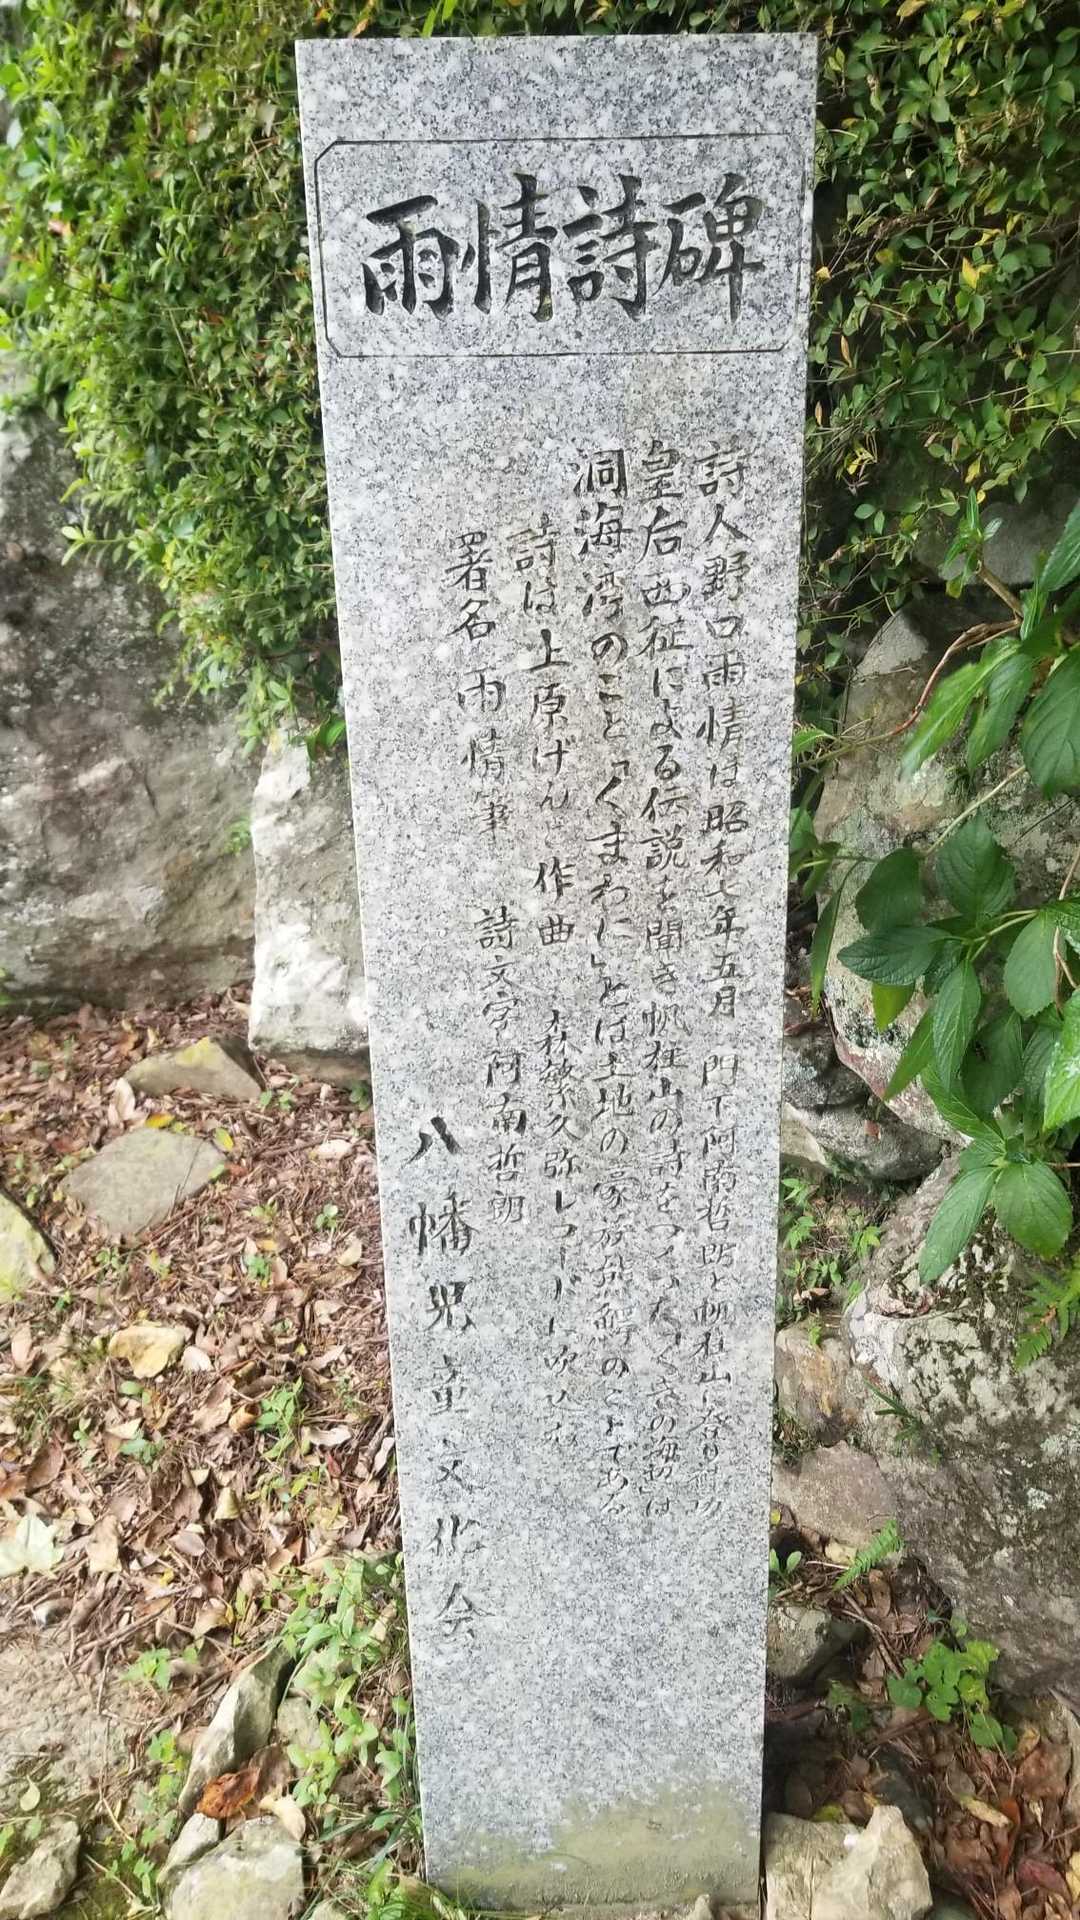 雨情詩碑
詩人野口雨情は昭和七年五月 門下阿南哲朗と帆柱山に登り神功
皇后西征による伝説を聞き帆柱山の詩をつくった「くきの海」は
洞海湾のこと「くまわに」とは土地の豪族熊鰐のことである
詩は上原げんと作曲 森繁久弥レコードに吹込む
署名雨情筆 詩文字阿南哲朗
八幡児童文化会